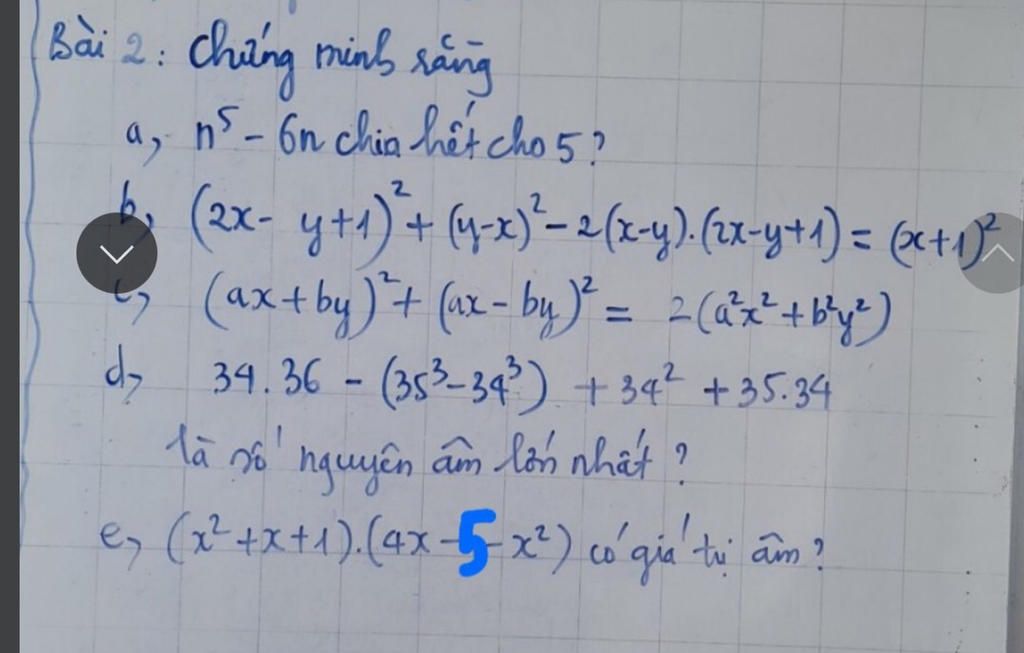 Bài 2: Chứng minh rằng
a, n⁵ - 6n chia hết cho 5?
b, (2x - y + 1)² + (y-x)² - 2(x-y).(2x-y+1) = (x+1)²
c, (ax + by)² + (ax - by)² = 2(a²x² + b²y²)
d, 34.36 - (35³-34³) + 34² + 35.34
là số nguyên âm lớn nhất?
e, (x²+x+1).(4x - 5 - x²) có giá trị âm?